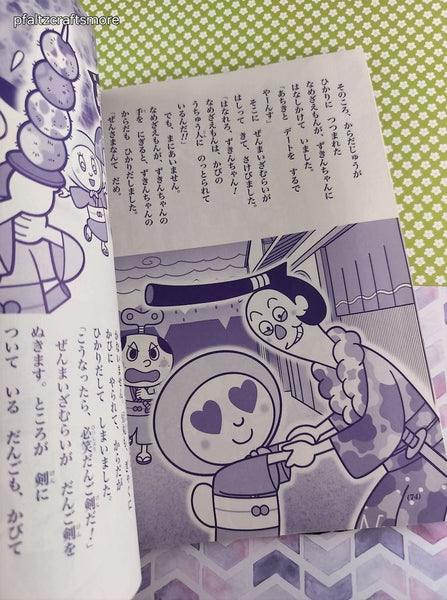 pfaltzcraftsmore
そのころ、からだじゅうが
ひかりに つつまれた
なめざえもんが、ずきんちゃんに
はなしかけて いました。
「あちきと デートを するで
やーんす」
そこに ぜんまいざむらいが
はしって きて、さけびました。
「はなれろ、ずきんちゃん!
なめざえもんは、かびの
うちゅう人に のっとられて
いるんだ!!」
でも、まにあいません。
なめざえもんが、ずきんちゃんの
手を にぎると、ずきんちゃんの
からだも ひかりだしました。
「ぜんさまなんて だめ。
(74)
かびに やられて、からだが
ひかりだして しまいました。
「こうなったら、必笑だんご剣だ!」
ぜんまいざむらいが だんご剣を
ぬきます。ところが 剣に
ついて いる だんごも、かびて